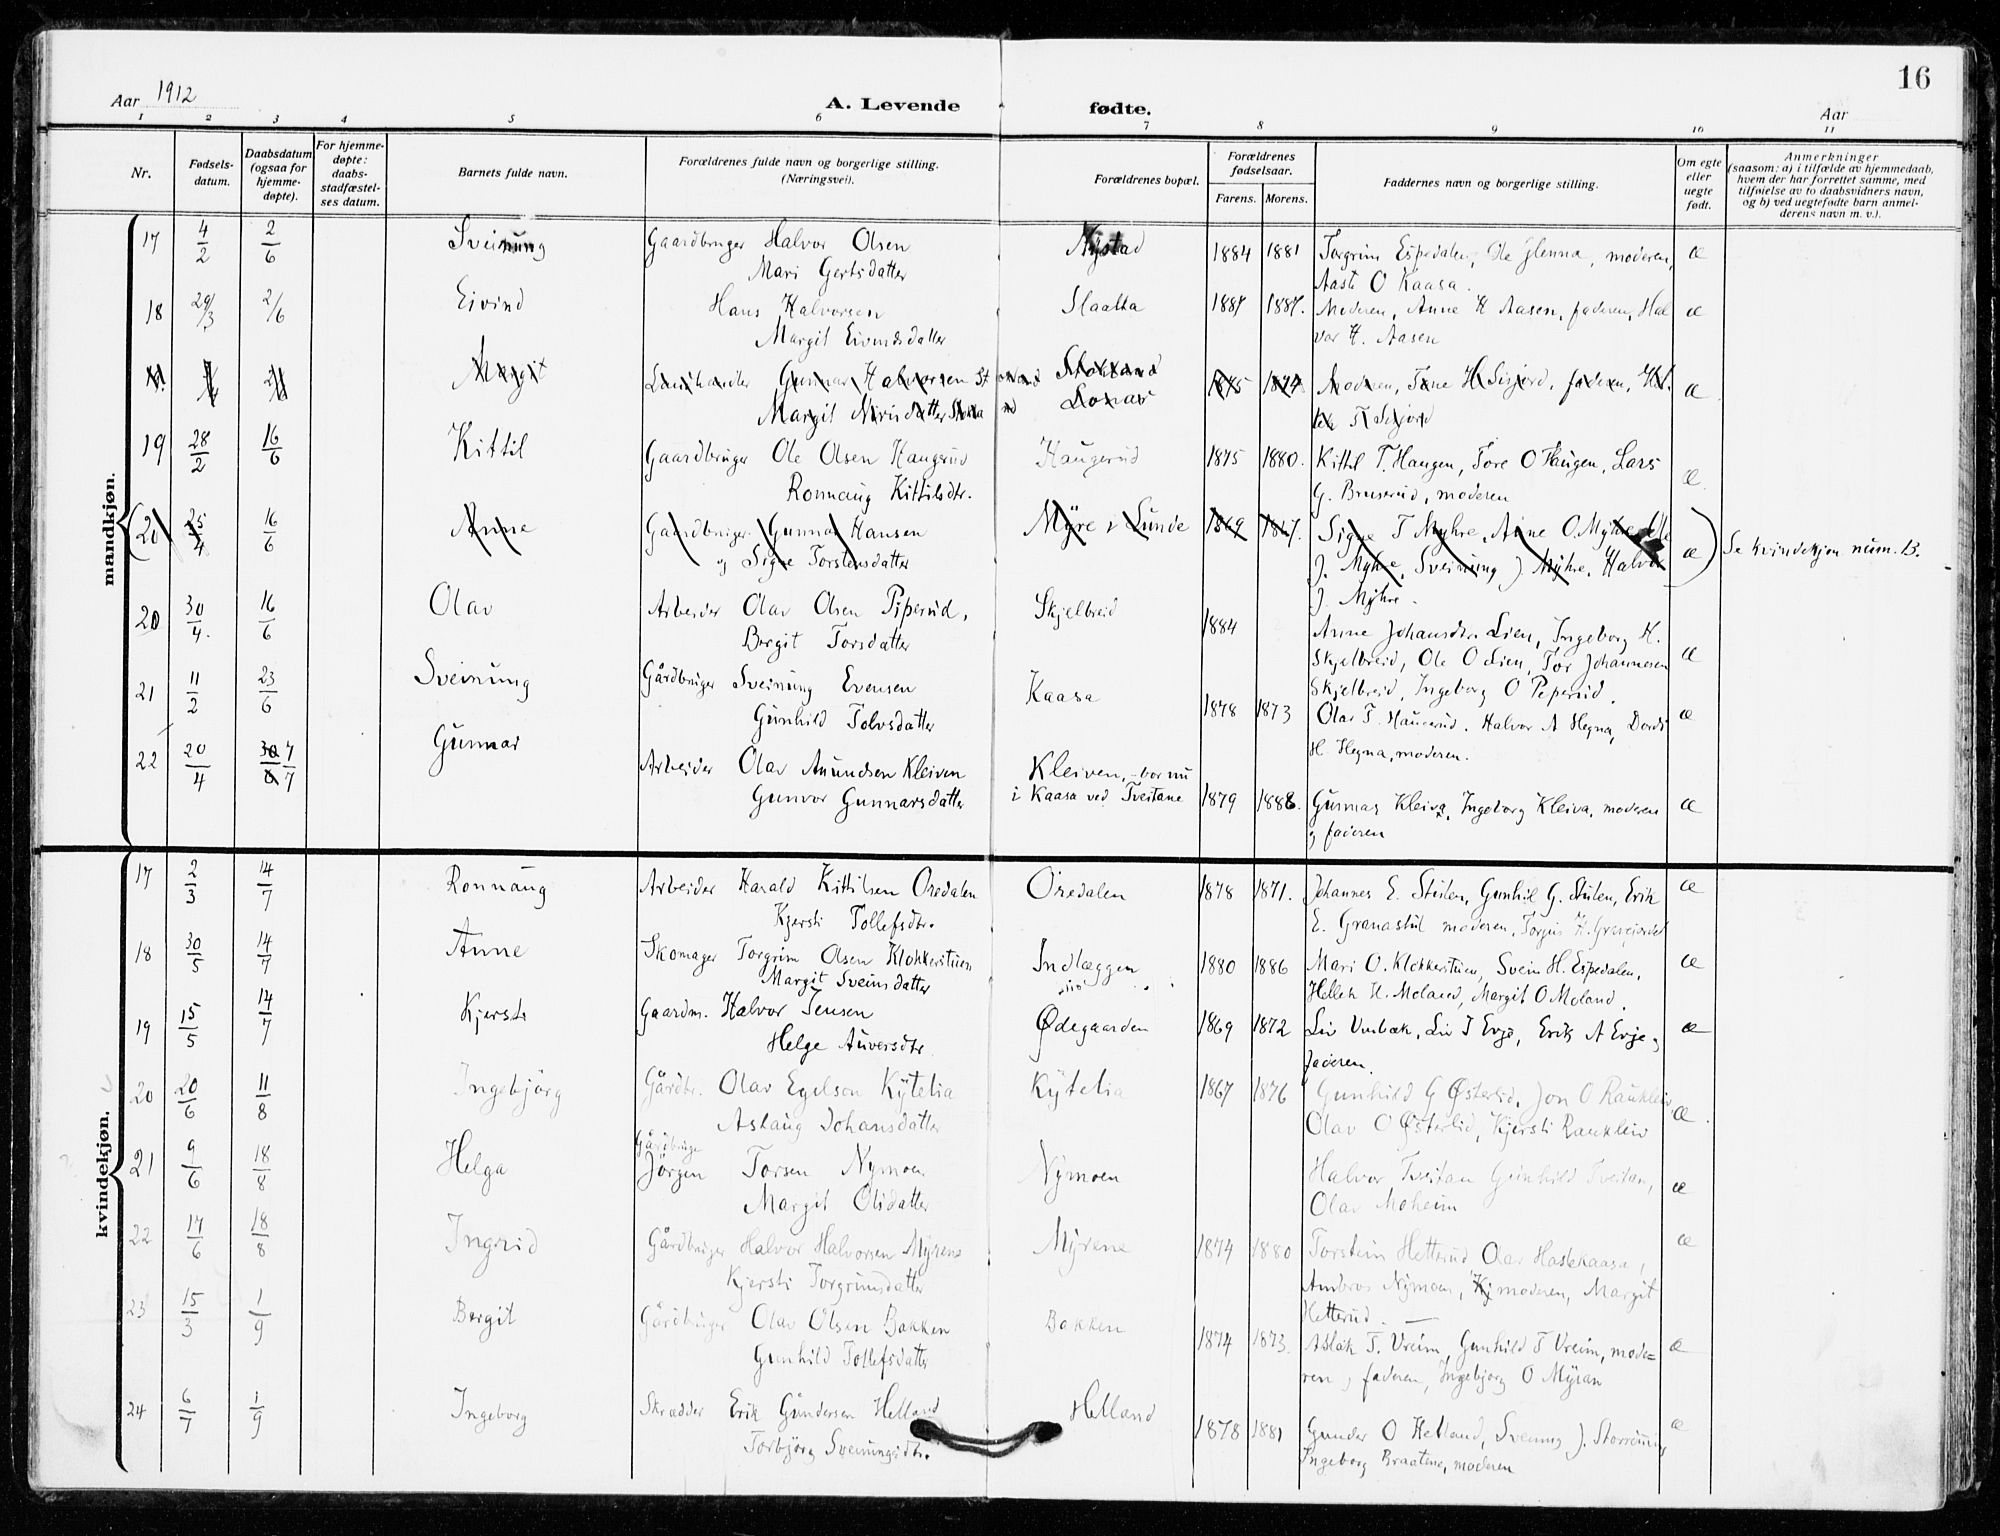 16
Aar 1912
A. Levende fødte.
Aar
1 2 3 4 5 6 7 8 9 10 11
Nr.
Fødsels-
datum.
Daabsdatum
(ogsaa for
hjemme-
døpte).
For hjemme-
døpte:
daabs-
stadfæstel-
ses datum.
Barnets fulde navn.
Forældrenes fulde navn og borgerlige stilling.
(Næringsvei).
Forældrenes bopæl.
Forældrenes
fødselsaar.
Farens. Morens.
Faddernes navn og borgerlige stilling.
Om egte
eller
uegte
født.
Anmerkninger
(saasom: a) i tilfælde av hjemmedaab,
hvem der har forrettet samme, med
tilføielse av to daabsvidners navn,
og b) ved uegtefødte barn anmel-
derens navn m. v.).
mandkjøn.
17 4/2 2/6 Sveinung Gaardbruger Halvor Olsen Nystad 1884 1881 Torgrim Espedalen, Ole Glenna, moderen, æ
Mari Gertsdatter Aaste O Kaasa.
18 29/3 2/6 Eivind Hans Halvorsen Slaatta 1887 1887. Moderen, Anne H Aasen, faderen, Hal æ
Margit Eivindsdatter vor H. Aasen
Margit Landhandler Gunnar Halvorsen Stokland 1875 1874 Moderen, Tone H Sisjord, faderen, æ
Margit Nirisdatter
19 28/2 16/6 Kittil Gaardbruger Ole Olsen Haugerud Haugerud 1875 1880. Kittil T. Haugen, Tore O Haugen, Lars æ
Ronnaug Kittilsdtr. G. Bruserud, moderen
(20 25/4 16/6 Anne Gaardbruger Gunnar Hansen Myre i Lunde 1869 1867. Signe T Myhre, Anne O Myhre, Ole æ) Se kvindekjøn num. 13.
og Signe Torstensdatter J. Myhre, Sveinung J. Myhre, Halvor
J. Myhre.
20 30/4 16/6 Olav Arbeider Olav Olsen Piperud, Skjelbreid 1884 Anne Johansdtr. Lien, Ingeborg H. æ
Bergit Torsdatter Skjelbreid, Ole O Lien, Tor Johannesen
Skjelbreid, Ingeborg O Peperud.
21 11/2 23/6 Sveinung Gårdbruger Sveinung Evensen Kaasa 1878 1873 Olav T. Haugerud. Halvor A Hegna, Dordi æ
Gunhild Tolvsdatter H. Hegna, moderen.
22 20/4 30/6 7/7 Gunnar Arbeider Olav Aanundsen Kleiven Kleiven, - bor nu
Gunvor Gunnarsdatter i Kaasa ved Tveitane 1879 1888. Gunnar Kleiva, Ingeborg Kleiva, moderen æ
og faderen
kvindekjøn.
17 2/3 14/7 Ronnaug Arbeider Harald Kittilsen Oredalen Oredalen 1878 1871. Johannes E. Stulen, Gunhil G. Stulen, Erik æ
Kjersti Tollefsdtr. E. Granastul moderen, Torjus H. Gravejordet
18 30/5 14/7 Anne Skomager Torgrim Olsen Klokkerstuen Indlæggen 1880 1886 Mari O. Klokkerstuen, Svein H. Espedalen, æ
Margit Sveinsdatter Hellek H. Moland, Margit O Moland.
19 15/5 14/7 Kjersti Gaardm. Halvor Jensen Ødegaarden 1869 1872 Liv Vinbæk, Liv I Evje, Erik A Evje og æ
Helge Auversdtr. faderen.
20 20/6 11/8 Ingebjörg Gårdbr. Olav Egelsen Kytelia Kytelia 1867 1876 Gunhild G Østerlid, Jon O Raukleiv æ
Aslaug Johansdatter Olav O Østerlid, Kjersti Raukleiv
21 9/6 18/8 Helga Gårdbruge
Jørgen Torsen Nymoen Nymoen Halvor Tveitan Gunhild Tveitan, æ
Margit Olsdatter Olav Moheim
22 14/6 18/8 Ingrid Gårdbruger Halvor Halvorsen Myrene Myrene 1874 1880 Torstein Hetterud Olav Haslekaasa, æ
Kjersti Torgrimsdatter Ambros Nymoen, moderen, Margit
Hetterud.
23 15/3 1/9 Bergit Gårdbruger Olav Olsen Bakken Bakken 1874 1873. Aslak T. Vreim, Gunhild T Vreim, mode= æ
Gunhild Tollefsdatter ren, faderen, Ingebjørg O Myran
24 6/7 1/9 Ingeborg Skrædder Erik Gundersen Helland Helland 1878 1881 Gunder O Helland, Sveinung J. æ
Torbjørg Sveinungsdtr. Ingeborg Braatene, moderen